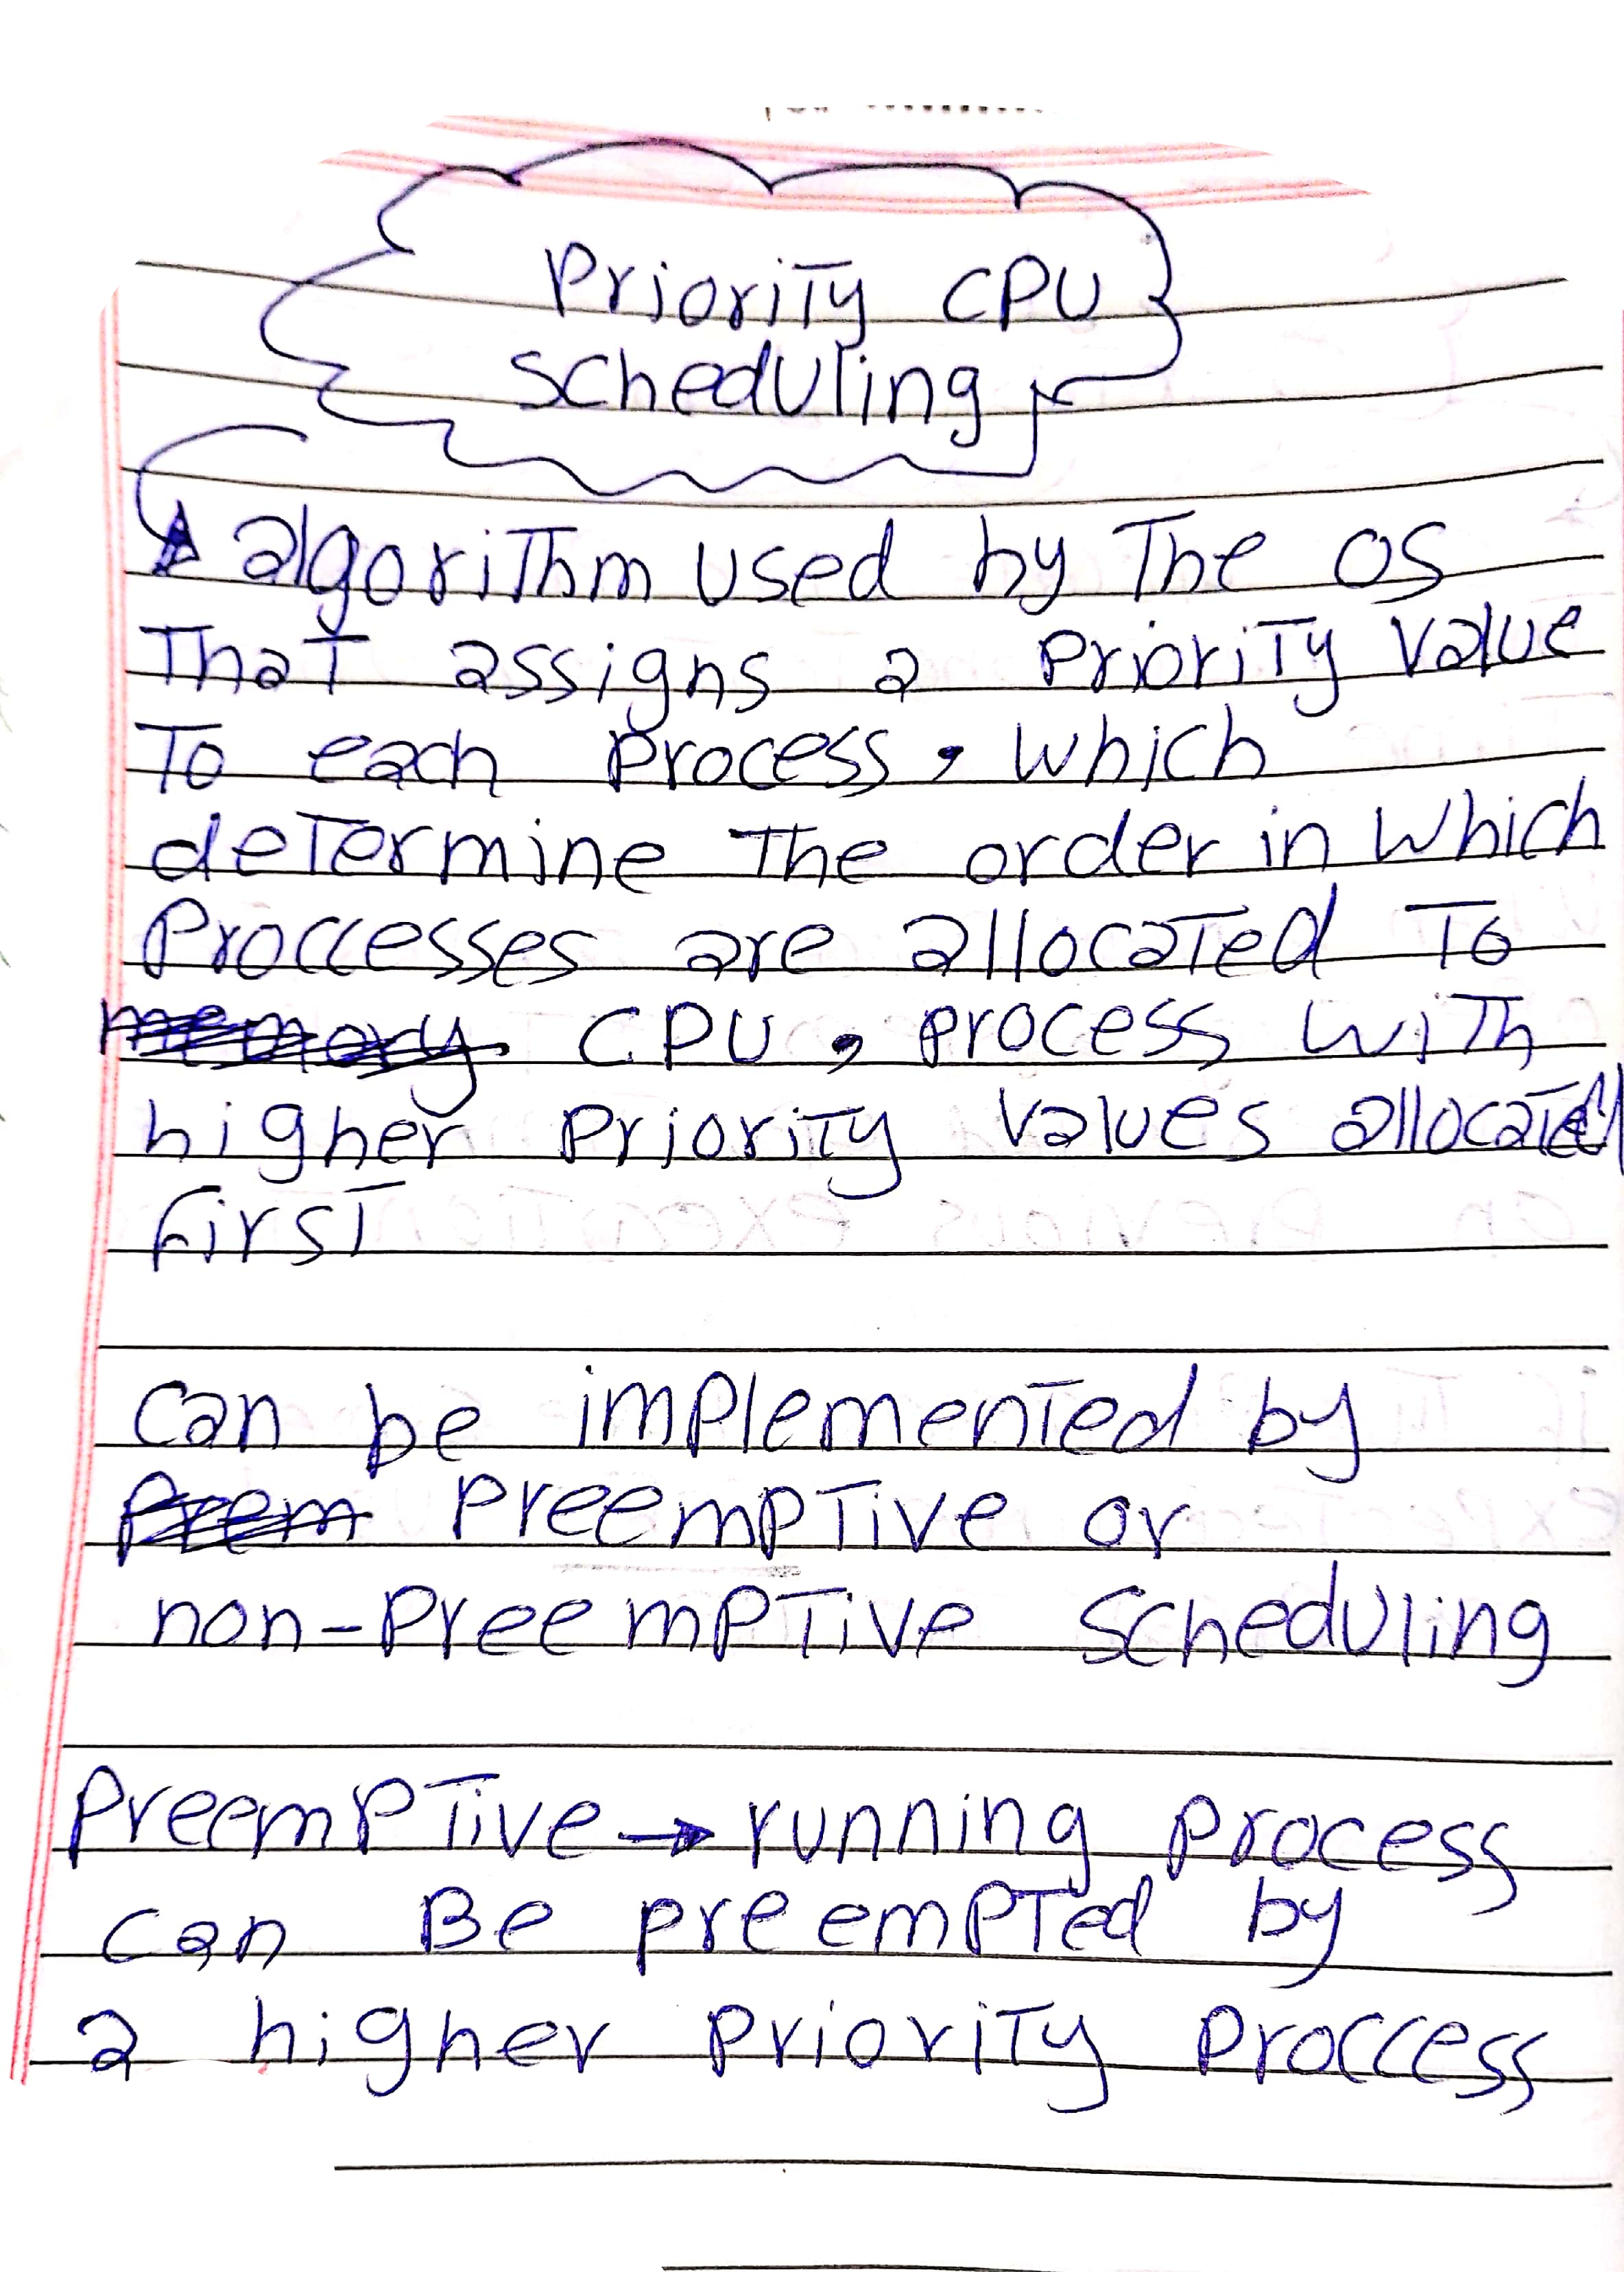 Priority CPU
scheduling
algorithm used by The OS
That assigns a Priority Value
To each Process, which
determine The order in which
Proccesses are allocated To
memory CPU, process with
higher Priority Values allocated
first
can be implemented by
Prem Preemptive or
non-Preemptive scheduling
Preemptive → running process
can Be preempted by
a higher priority proccess